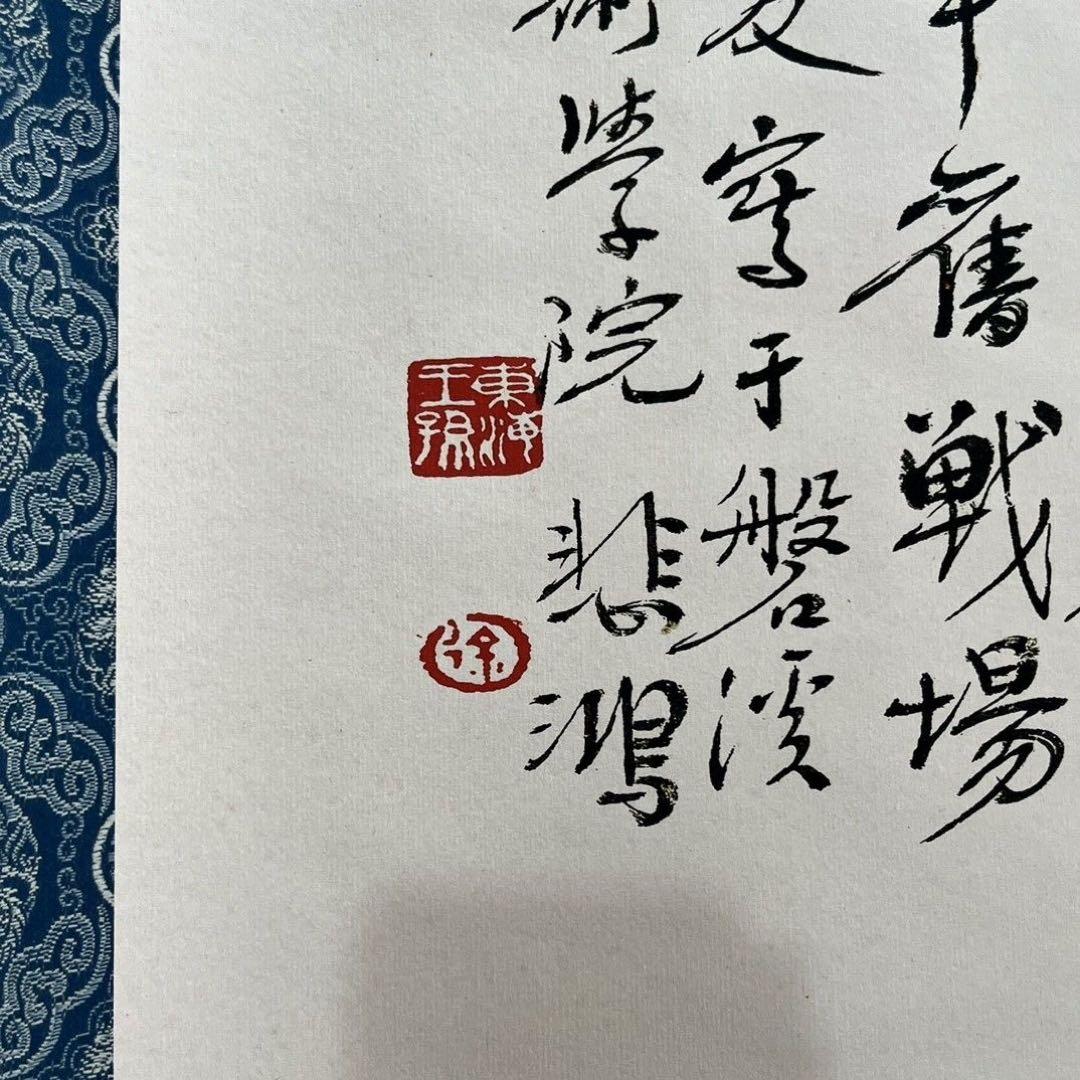 舊戰場
夏寫于磐溪
術學院 悲鴻
東海王孫
徐